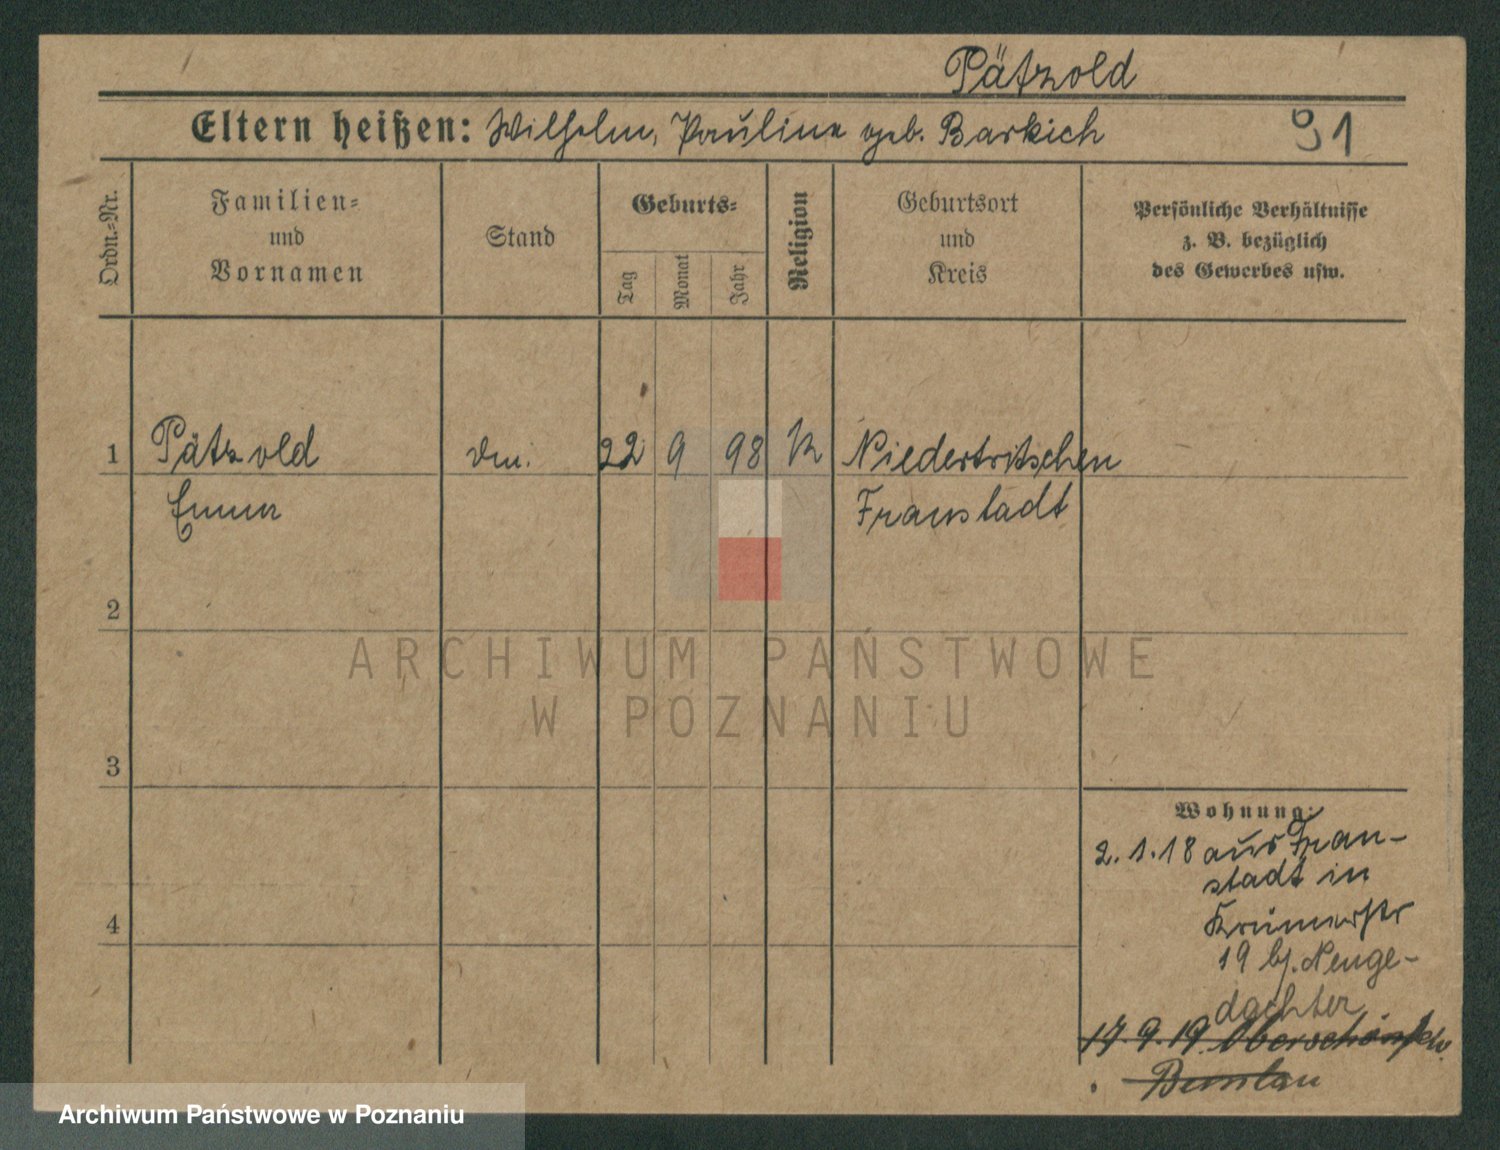 Pätzold
Eltern heißen: Wilhelm, Pauline geb. Barkich
91
Ordn.-Nr.
Familien-
und
Vornamen
Stand
Geburts-
Tag
Monat
Jahr
Religion
Geburtsort
und
Kreis
Persönliche Verhältnisse
z. B. bezüglich
des Gewerbes usw.
1 Pätzold 22 9 98 K Niedertritschen
Emma Fraustadt
2
3
4
Wohnung:
2.1.18 aus Frau-
stadt in
19 b/. Neuge-
dachter
17.9.19.
Bunzlau
ARCHIWUM PAŃSTWOWE
W POZNANIU
Archiwum Państwowe w Poznaniu